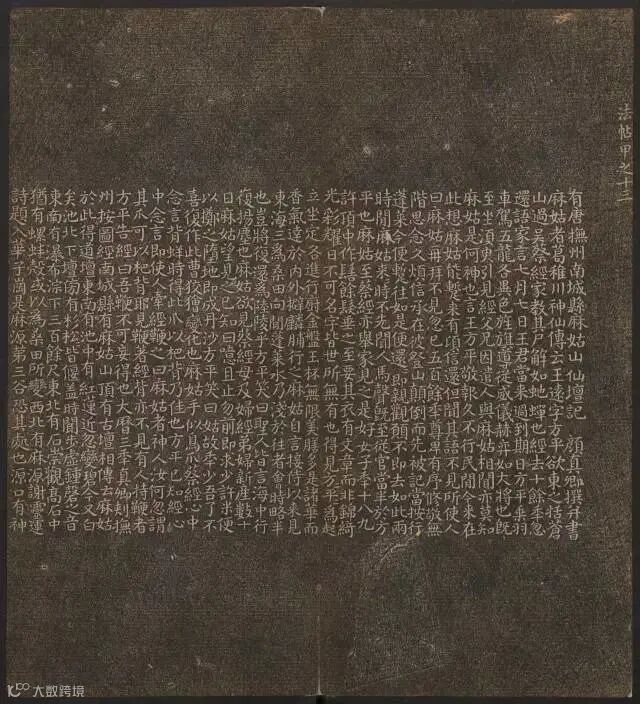 法帖甲之十三
有唐撫州南城縣麻姑山仙壇記 顏真卿撰并書
麻姑者葛稚川神仙傳云王遠字方平欲東之括蒼
山過吳蔡經家教其尸解如蛇蟬也經去十餘年忽
還語家言七月七日王君當来過到期日方平乗羽
車駕五龍各異色旌旗導從威儀赫弈如大將也既
至坐須臾引見經父兄因遣人與麻姑相聞亦莫知
麻姑是何神也言王方平敬報久不行民間今来在
此想麻姑能暫来有頃信還但聞其語不見所使人
曰麻姑再拜不見忽已五百餘年尊卑有序脩敬無
階思念久煩信承在彼登山顛倒而先被記當按行
蓬萊今便暫往如是便還還即親觀願不即去如此兩
時間麻姑来時不先聞人馬聲既至從官當半於方
平也麻姑至蔡經亦舉家見之是好女子年十八九
許頂中作髻餘髮垂之至要其衣有文章而非錦綺
光彩耀日不可名字皆世所無有也得見方平方平為起
立坐定各進行廚金盤玉杯無限美膳多是諸華而
香氣達於内外擗麟脯行之麻姑自言接侍以来見
東海三為桑田向間蓬萊水乃淺於往者會時略半
也豈將復還為陸陵乎方平笑曰聖人皆言海中行
復揚塵也麻姑欲見蔡經母及婦經弟婦新產數十
日麻姑望見之已知曰噫且止勿前即求少許米便
以擲之墮地即成丹沙方平笑曰姑故年少吾了不
喜復作此曹狡獪變化也麻姑手似鳥爪蔡經心中
念言背蛘時得此爪以杷背乃佳也方平已知經心
中念言即使人牽經鞭之曰麻姑者神人汝何忽謂
其爪可以杷背耶見鞭著經背亦不見有人持鞭者
方平告經曰吾鞭不可妄得也大曆三年真卿刺撫
州按圖經南城縣有麻姑山頂有古壇相傳云麻姑
於此得道壇東南有池中有紅蓮近忽變碧今又白
矣池北下壇傍有杉松皆偃蓋時聞步虛鍾磬之音
東南有瀑布淙下三百餘尺東北有石崇觀高石中
猶有螺蚌殼或以為桑田所變西北有麻源謝靈運
詩題入華子崗是麻源第三谷恐其處也源口有神
大数跨境